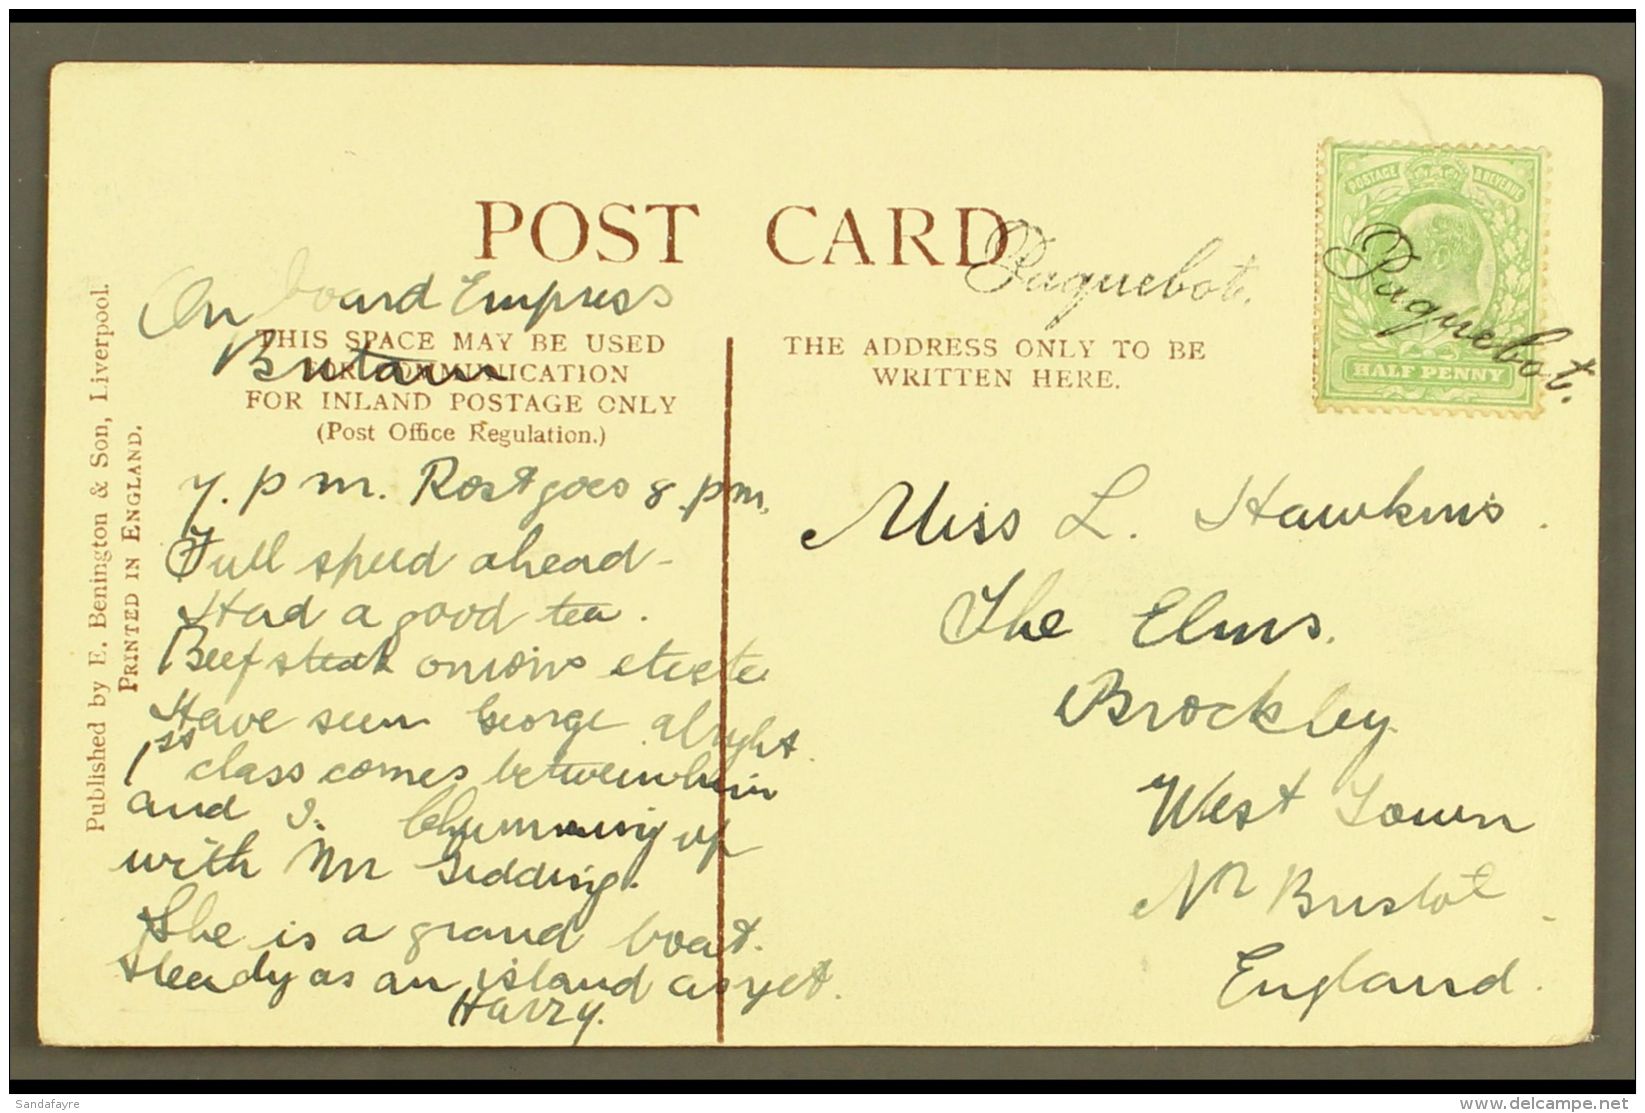 POST CARD
Paquebot.
Paquebot.
POSTAGE & REVENUE
HALF PENNY
On board Empress
Britain
THIS SPACE MAY BE USED
FOR COMMUNICATION
FOR INLAND POSTAGE ONLY
(Post Office Regulation.)
THE ADDRESS ONLY TO BE
WRITTEN HERE.
Published by E. Benington & Son, Liverpool.
PRINTED IN ENGLAND.
7. p m. Post goes 8. pm.
Full speed ahead -
Had a good tea.
Beef steak onions etcetc
Have seen George alright.
1ss class comes between him
and I. Chumming up
with Mr Gidding.
She is a grand boat.
Steady as an island as yet.
Harry.
Miss L. Hawkins.
The Elms.
Brockley
West Town
Nr Bristol
England.
Sandafayre
www.delcampe.net